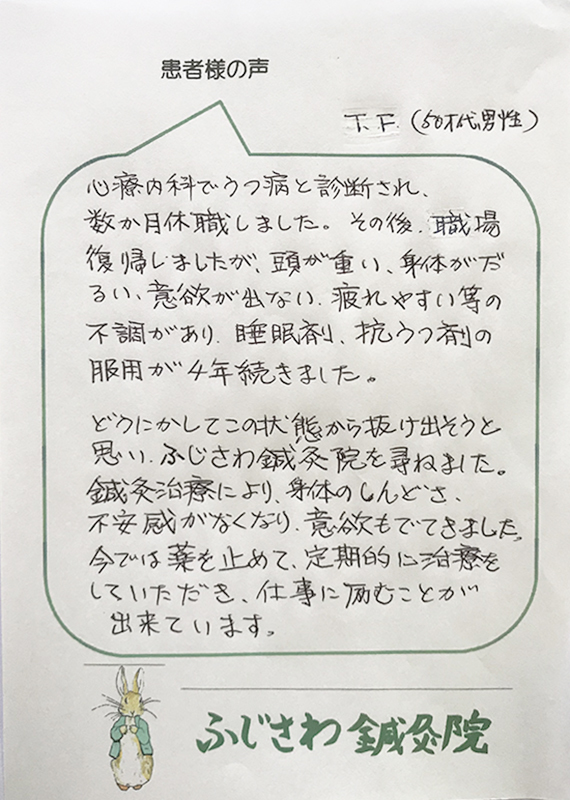 患者様の声
T.F.(50才代男性)
心療内科でうつ病と診断され、
数か月休職しました。その後、職場
復帰しましたが、頭が重い、身体がだ
るい、意欲が出ない、疲れやすい等の
不調があり、睡眠剤、抗うつ剤の
服用が4年続きました。
どうにかしてこの状態から抜け出そうと
思い、ふじさわ鍼灸院を尋ねました。
鍼灸治療により、身体のしんどさ、
不安感がなくなり、意欲もでてきました。
今では薬を止めて、定期的に治療を
していただき、仕事に励むことが
出来ています。
ふじさわ鍼灸院